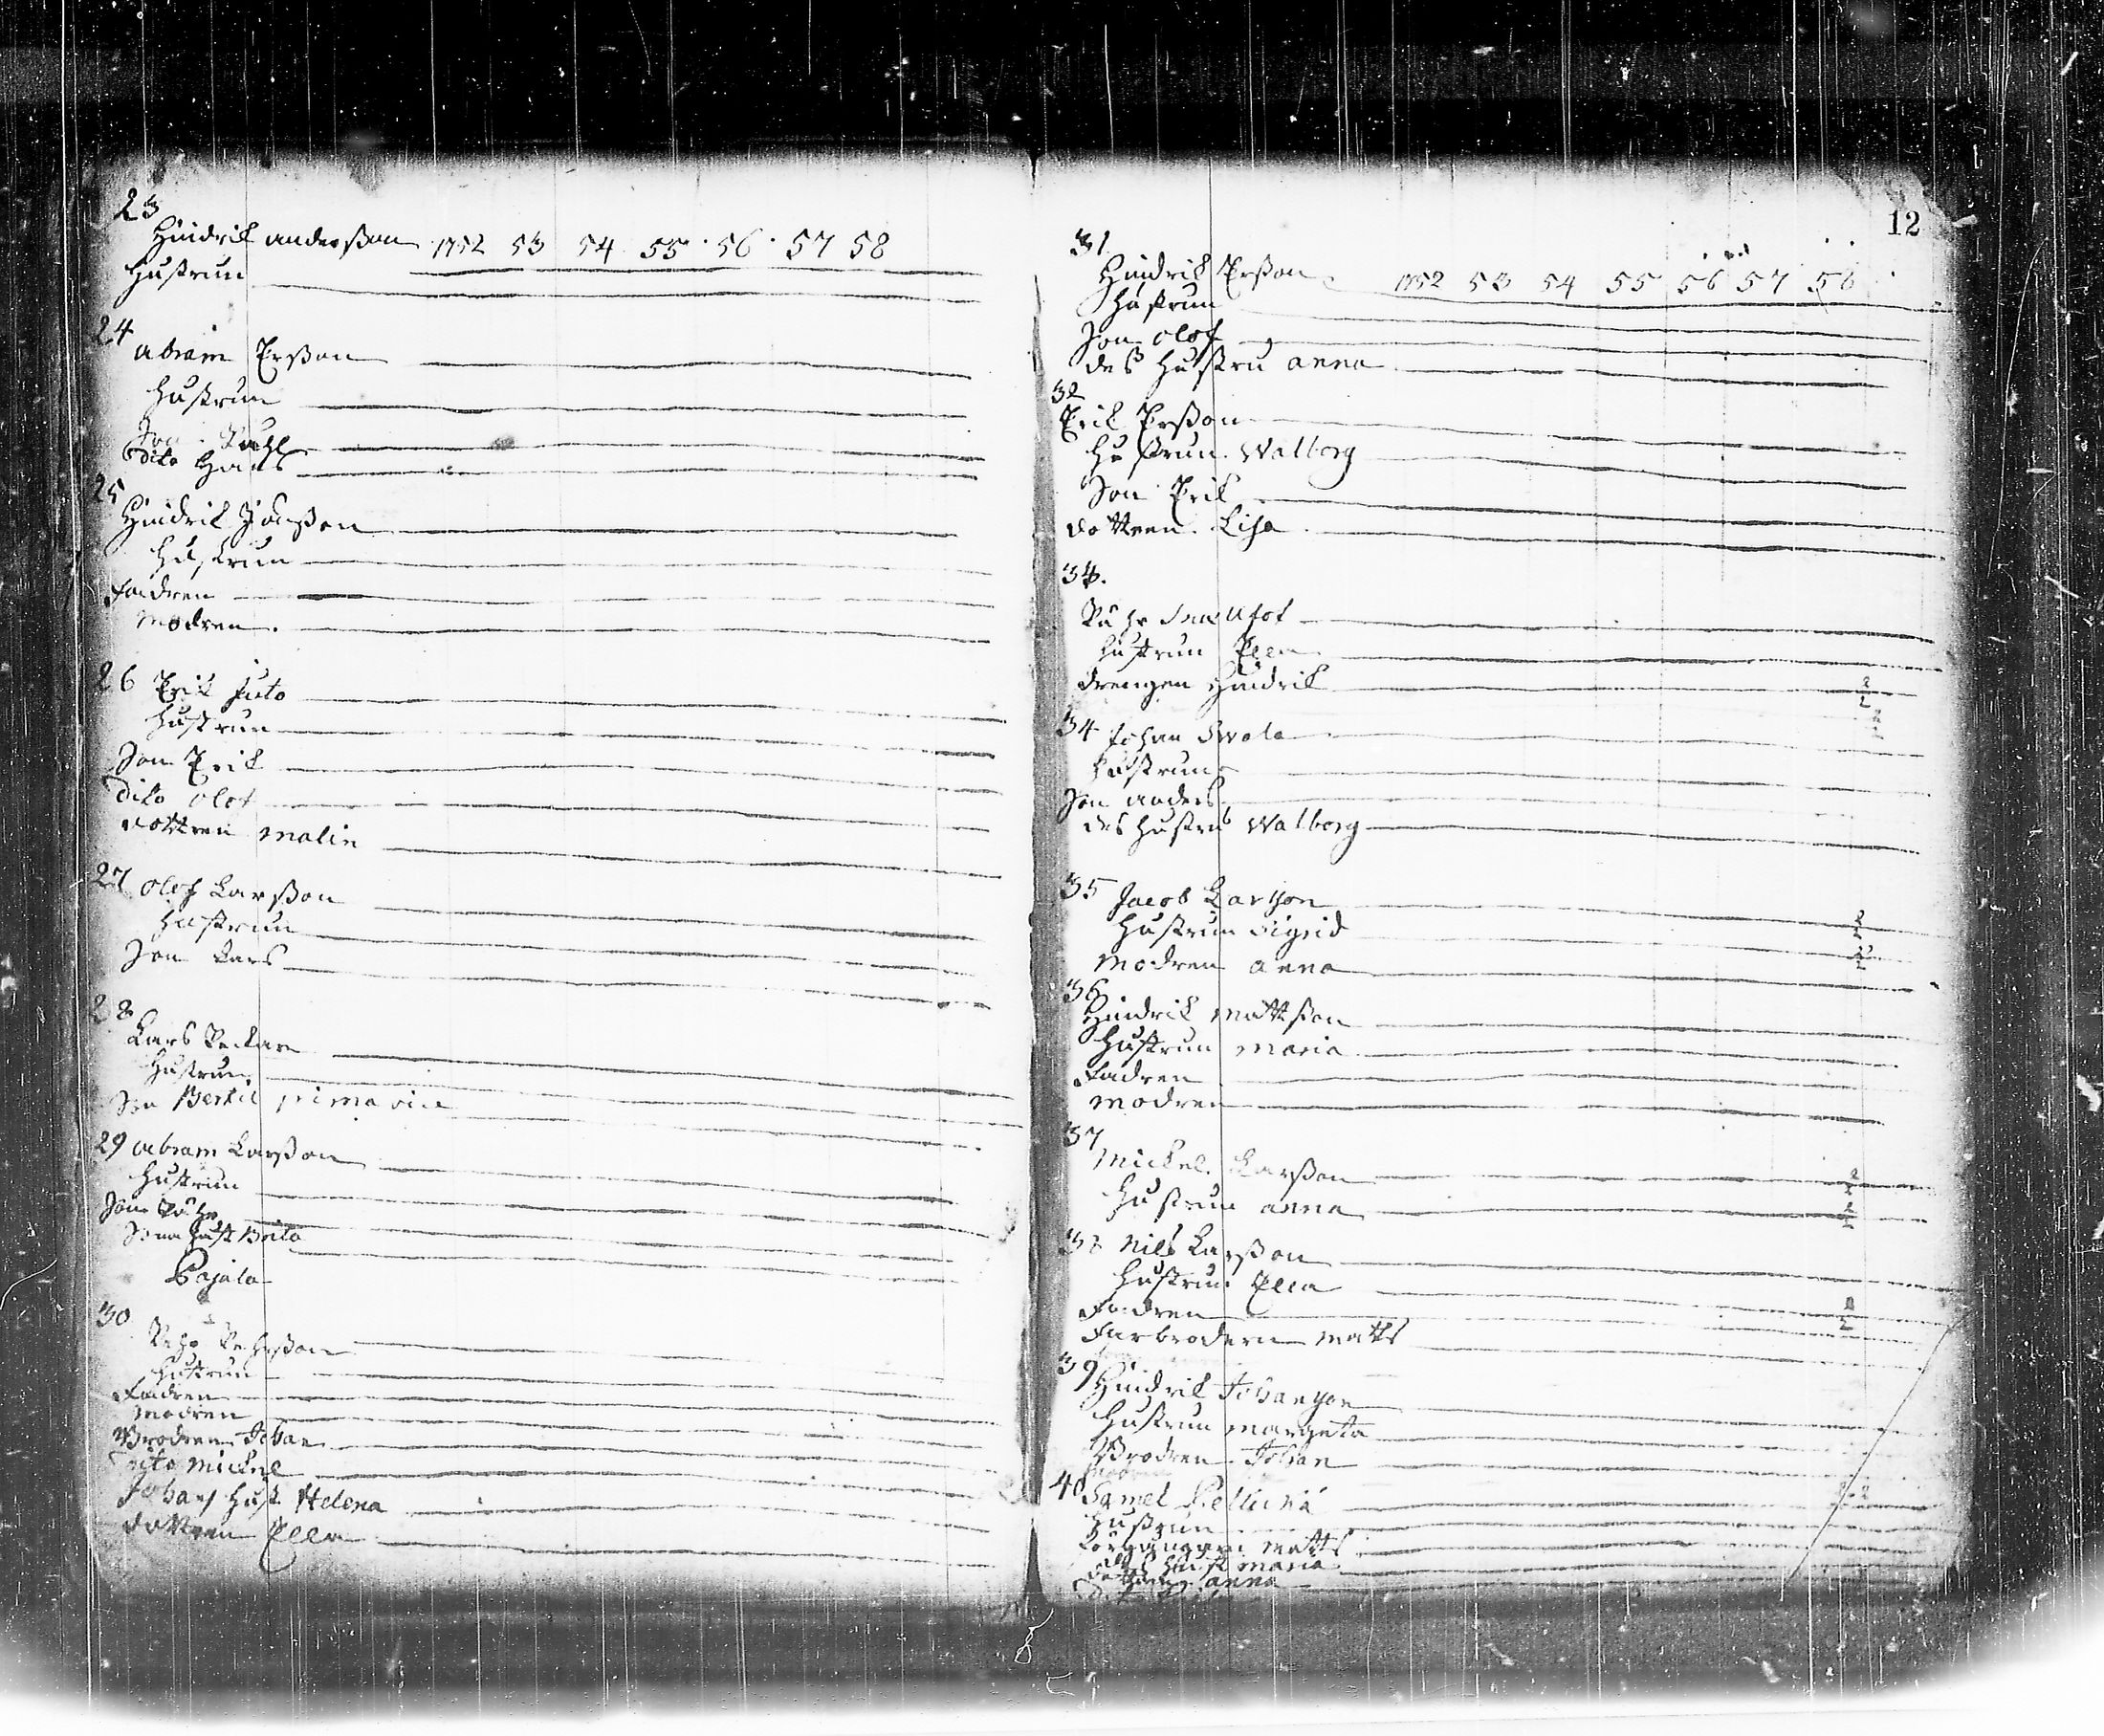 23
Hindrik anderßon 1752 53 54 55 56 57 58
Hustrun
24
abram Erßon
Hustrun
Son Påhl
Dito Hans
25
Hindrik Jönßon
Hustrun
Fadren
Modren
26 Erik Juto
Hustrun
Son Erik
Dito Olof
dottren malin
27 Olof Larßon
Hustrun
Son Lars
28
Lars
Hustrun
Son Bertil prima vice
29 abram Larßon
Hustrun
Son Påhr
Hust Brita
Pajala
30
Pehr Pehrßon
Hustrun
Fadren
Modren
Brodren Johan
Dito Mickel
Johans Hust. Helena
dottren Ella
12
31
Hindrik Erßon 1752 53 54 55 56 57 58
Hustrun
Son Olof
des Hustru anna
32
Erik Erßon
Hustrun Walborg
Son Erik
dottren Lisa
34.
Påhr
Hustrun Ella
drengen Hindrik
34 Johan Swala
Hustrun
Son anders
des Hustru Walborg
35 Jacob Larsson
Hustrun Sigrid
Modren anna
36
Hindrik Mattsson
Hustrun Maria
Fadren
Modren
37
Mickel Larßon
Hustrun anna
38 Nils Larßon
Hustrun Ella
Fadren
Farbrodern Matts
39 Hindrik Johansson
Hustrun Margeta
Brodren Johan
Modren
40 Samel
Hustrun
Matts
Hust Maria
dottren anna